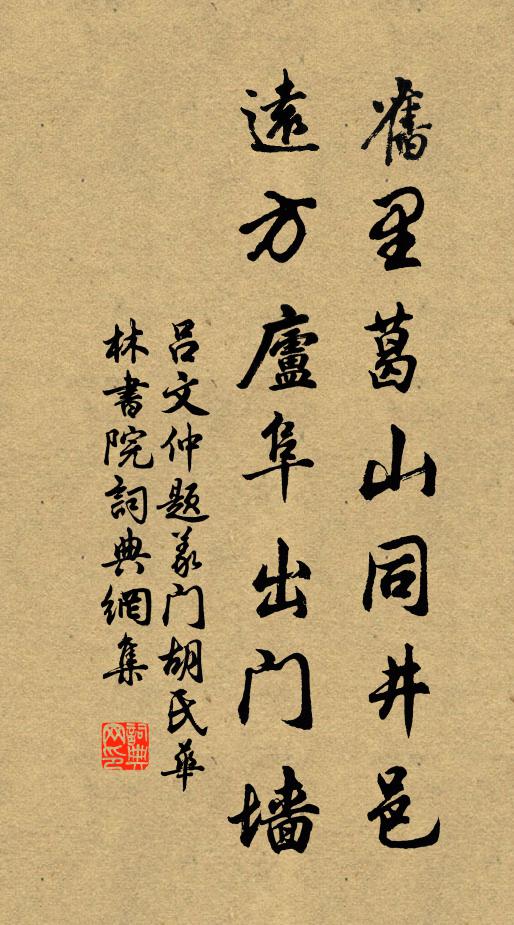 舊里葛山同井邑
遠方廬阜出门墙
吕文仲题義门胡氏華
林書院詞典網集
詞典
网印